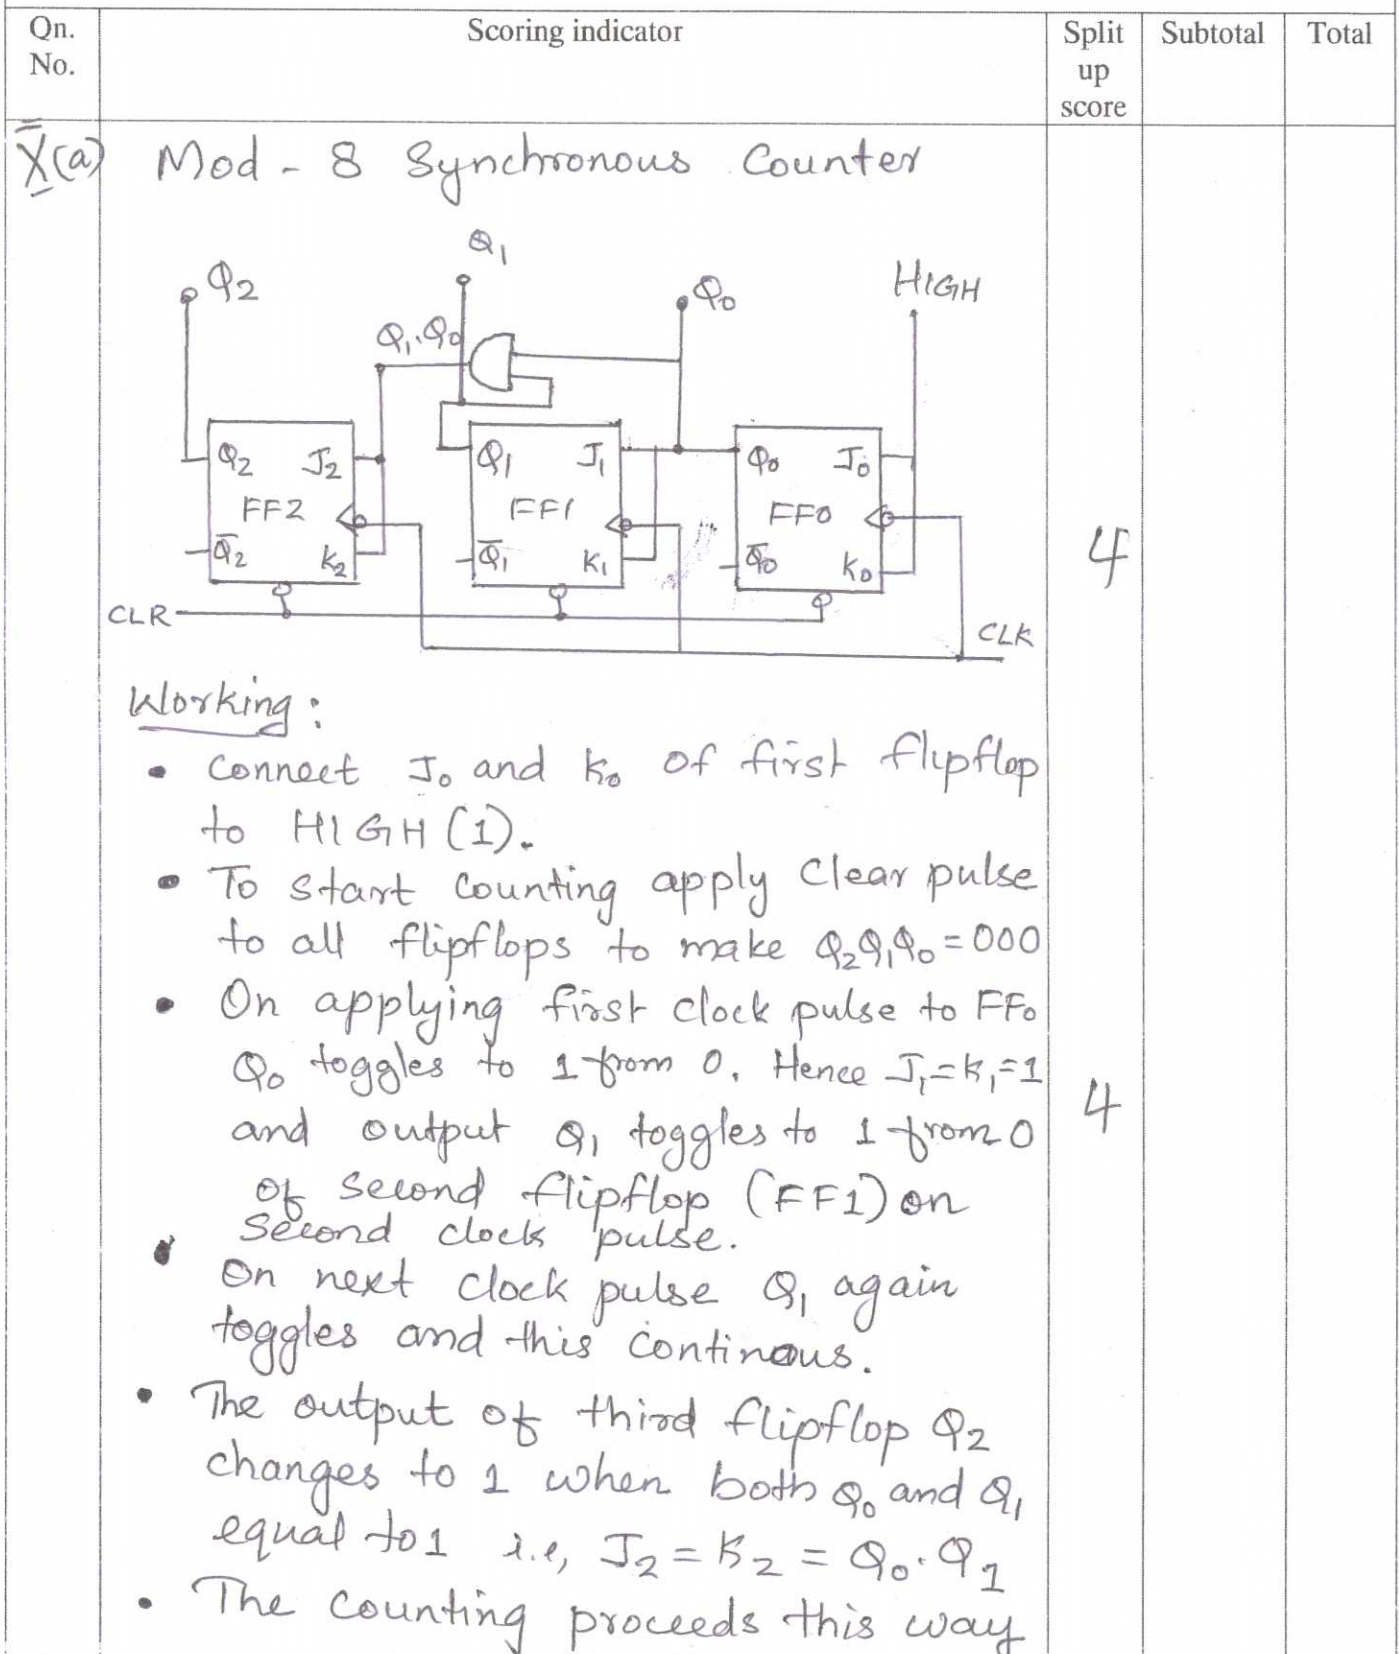 Qn. No.
Scoring indicator
Split up score
Subtotal
Total
X(a) Mod - 8 Synchronous Counter
Q1
Q2
Q0
HIGH
Q1.Q0
Q2 J2
Q1 J1
Q0 J0
FF2
FF1
FF0
Q̅2 K2
Q̅1 K1
Q̅0 K0
4
CLR
CLK
Working :
• Connect J0 and K0 of first flipflop
to HIGH (1).
• To start counting apply Clear pulse
to all flipflops to make Q2Q1Q0 = 000
• On applying first clock pulse to FF0
Q0 toggles to 1 from 0. Hence J1=K1=1
4
and output Q1 toggles to 1 from 0
of second flipflop (FF1) on
second clock pulse.
• On next clock pulse Q1 again
toggles and this continous.
• The output of third flipflop Q2
changes to 1 when both Q0 and Q1
equal to 1 i.e, J2 = K2 = Q0.Q1
• The counting proceeds this way